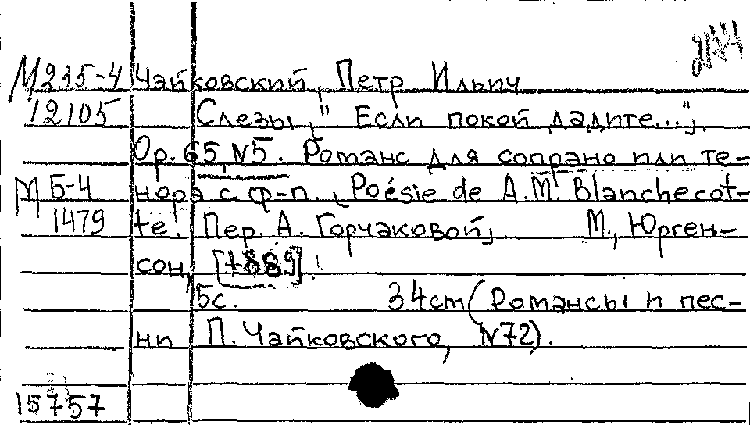 М215-4 Чайковский, Петр Ильич
12105 Слезы „Если покой дадите...".
Ор. 65, N5. Романс для сопрано или те-
М Б-4 нора с ф-п. Poésie de A.M. Blanchecot-
1479 te. Пер. А. Горчаковой. М., Юрген-
сон, [1889].
5с. 34cm (Романсы и пес-
ни П. Чайковского, N72).
15757